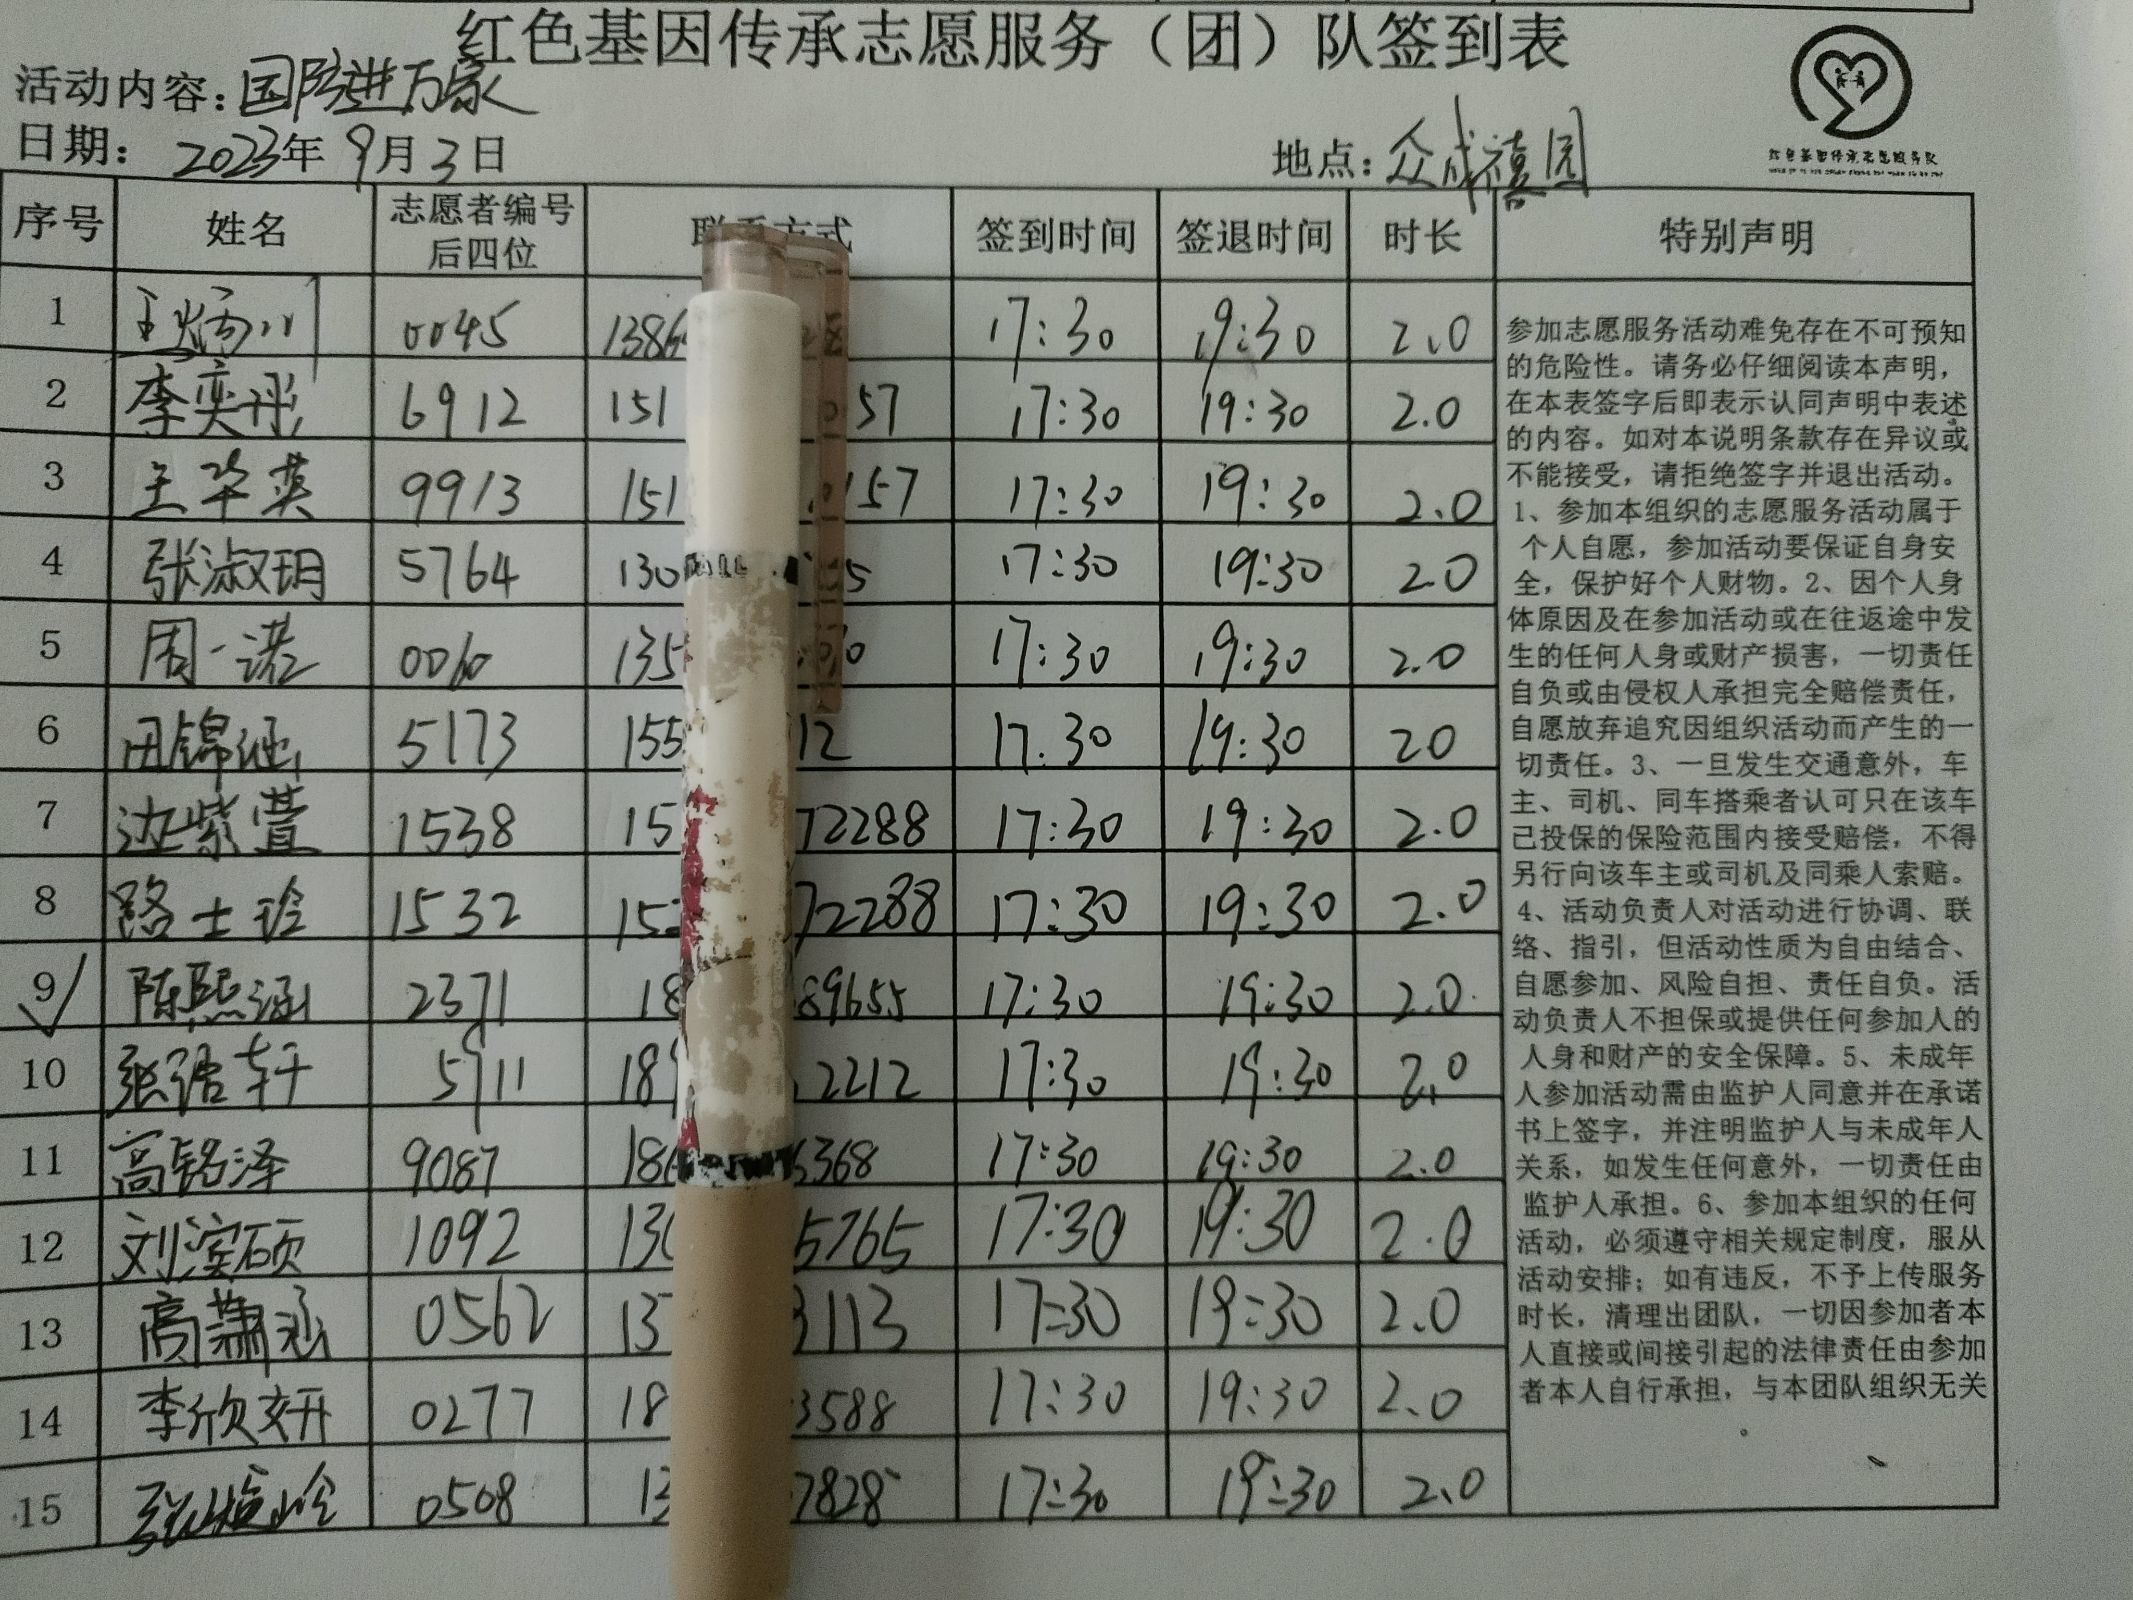 红色基因传承志愿服务（团）队签到表
活动内容：国防进万家
日期：2023年9月3日 地点：众成禧园
红色基因传承志愿服务队
序号 姓名 志愿者编号后四位 签到时间 签退时间 时长 特别声明
1 0045 1386 17:30 19:30 2.0
2 李奕彤 6912 151 57 17:30 19:30 2.0
3 王华英 9913 151 157 17:30 19:30 2.0
4 张淑玥 5764 130 5 17:30 19:30 2.0
5 周一诺 0060 135 17:30 19:30 2.0
6 田锦涵 5173 155 12 17:30 19:30 20
7 边紫萱 1538 15 72288 17:30 19:30 2.0
8 路士玲 1532 15 72288 17:30 19:30 2.0
9 陈熙涵 2371 18 89655 17:30 19:30 2.0
10 张洺轩 5911 18 2212 17:30 19:30 2.0
11 高铭泽 9087 186 6368 17:30 19:30 2.0
12 刘滨硕 1092 130 5765 17:30 19:30 2.0
13 高萧涵 0562 13 3113 17:30 19:30 2.0
14 李欣妍 0277 18 3588 17:30 19:30 2.0
15 0508 13 7828 17:30 19:30 2.0
参加志愿服务活动难免存在不可预知
的危险性。请务必仔细阅读本声明，
在本表签字后即表示认同声明中表述
的内容。如对本说明条款存在异议或
不能接受，请拒绝签字并退出活动。
1、参加本组织的志愿服务活动属于
个人自愿，参加活动要保证自身安
全，保护好个人财物。2、因个人身
体原因及在参加活动或在往返途中发
生的任何人身或财产损害，一切责任
自负或由侵权人承担完全赔偿责任，
自愿放弃追究因组织活动而产生的一
切责任。3、一旦发生交通意外，车
主、司机、同车搭乘者认可只在该车
已投保的保险范围内接受赔偿，不得
另行向该车主或司机及同乘人索赔。
4、活动负责人对活动进行协调、联
络、指引，但活动性质为自由结合、
自愿参加、风险自担、责任自负。活
动负责人不担保或提供任何参加人的
人身和财产的安全保障。5、未成年
人参加活动需由监护人同意并在承诺
书上签字，并注明监护人与未成年人
关系，如发生任何意外，一切责任由
监护人承担。6、参加本组织的任何
活动，必须遵守相关规定制度，服从
活动安排；如有违反，不予上传服务
时长，清理出团队，一切因参加者本
人直接或间接引起的法律责任由参加
者本人自行承担，与本团队组织无关
。